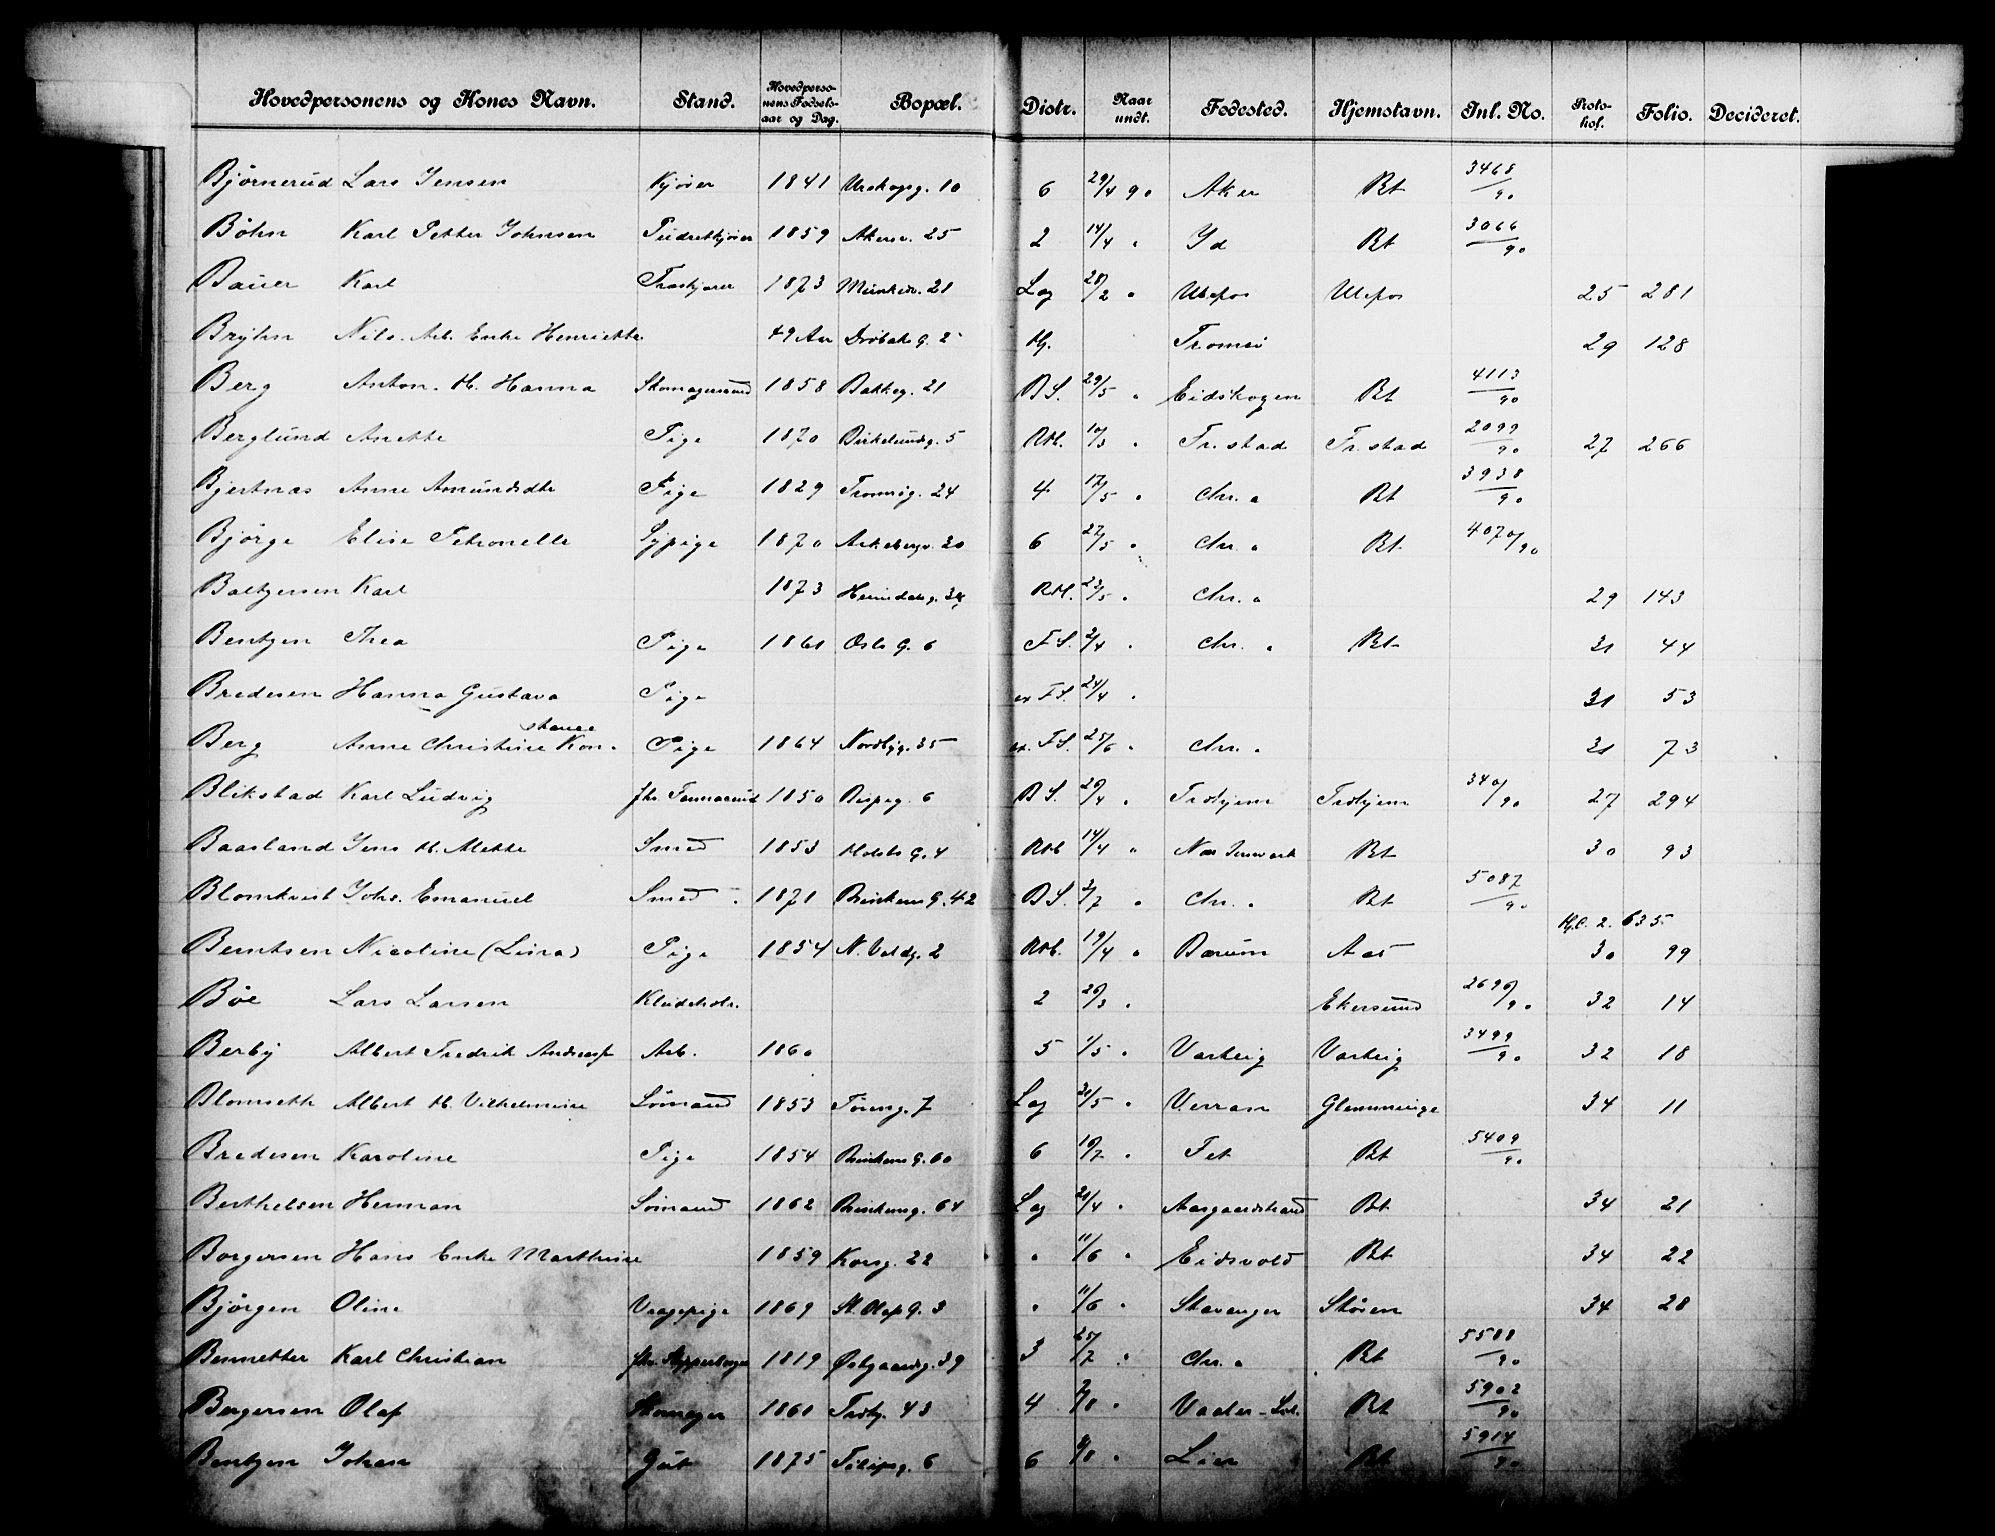 Hovedpersonens og Kones Navn. Stand. Hovedpersonens Fødselsaar og Dag. Bopæl. Distr. Naar undt. Fødested. Hjemstavn. Inl. No. Protokol. Folio. Decideret.
Bjørnerud Lars Jensen Kjører 1841 10 6 29/4 90 Aker Bt 3468/90
Bøhn Karl Petter Johnsen Pudretkjører 1859 Akersv. 25 2 14/4 " Id Bt 3066/90
Bauer Karl 1873 Munkedv. 21 Lag 28/2 " Ulefos Ulefos 25 281
Bryhn Nils. Arb. Enke Henriette 49 Aar Drøbak G. 2 Hj. Tromsø 29 128
Berg Anton. H. Hanna Skomagersvend 1858 Bakkeg. 21 B S. 29/5 " Eidskogen Bt 4113/90
Berglund Anette Pige 1870 Birkelundg. 5 RH. 10/3 " Fr. stad Fr. stad 2099/90 27 266
Bjertnæs Anne Amundsdtr Pige 1829 Tromsøg. 24 4 17/5 " Chr. a Bt 3938/90
Bjørge Elise Petronelle Sypige 1870 Akebergv. 20 6 27/5 " Chr. a Bt 4070/90
Baltzersen Karl 1873 RH. 23/5 " Chr. a 29 143
Bentzen Thea Pige 1861 Oslo G. 6 F S. 2/4 " Chr. a Bt 31 44
Bredesen Hanna Gustava Pige F S. 24/4 " 31 53
Berg Anne Christine Konstance Pige 1864 Nordbyg. 35 F S. 25/6 " Chr. a 31 73
Blikstad Karl Ludvig fhv. 1850 Bispeg. 6 B S. 29/4 " Trohjem Trohjem 340/90 27 294
Baasland Jens H. Alette Smed 1853 Holsts G. 4 RH 14/4 " Bt 30 93
Blomkvist Johs. Emanuel Smed 1871 G. 42 B S. 3/7 " Chr. a Bt 5087/90
2. 635
Berntsen Nicoline (Lina) Pige 1854 N. Voldg. 2 RH. 19/4 " Bærum Aas 30 99
Bøe Lars Larsen Kludeh 2 26/3 " Ekersund 2696/90 32 14
Berby Albert Fredrik Andreas Arb. 1860 5 1/5 " Varteig Varteig 3499/90 32 18
Blomseth Albert H. Vilhelmine Sømand 1853 Tøieng. 7 Lag 31/5 " Verran Glemminge 34 11
Bredesen Karoline Pige 1854 G. 60 6 10/7 " Fet Bt 5409/90
Berthelsen Herman Sømand 1862 64 Lag 21/4 " Aasgaardstrand Bt 34 21
Borgersen Hans Enke Marthine 1859 Korsg. 22 " 11/6 " Eidsvold Bt 34 22
Bjørgen Oline Vaagepige 1869 St. Olaf G. 3 " 11/6 " Stavanger Støren 34 28
Bennetter Karl Christian fhv. 1819 Østgaardsg. 39 3 25/7 " Chr. a Bt 5588/90
Bergersen Olaf Skomager 1860 Trohj. 43 4 7/8 " Vaaler Bt 5902/90
Bentzen Johan Gut 1875 Filipsg. 6 6 8/8 " Lier Bt 5914/90